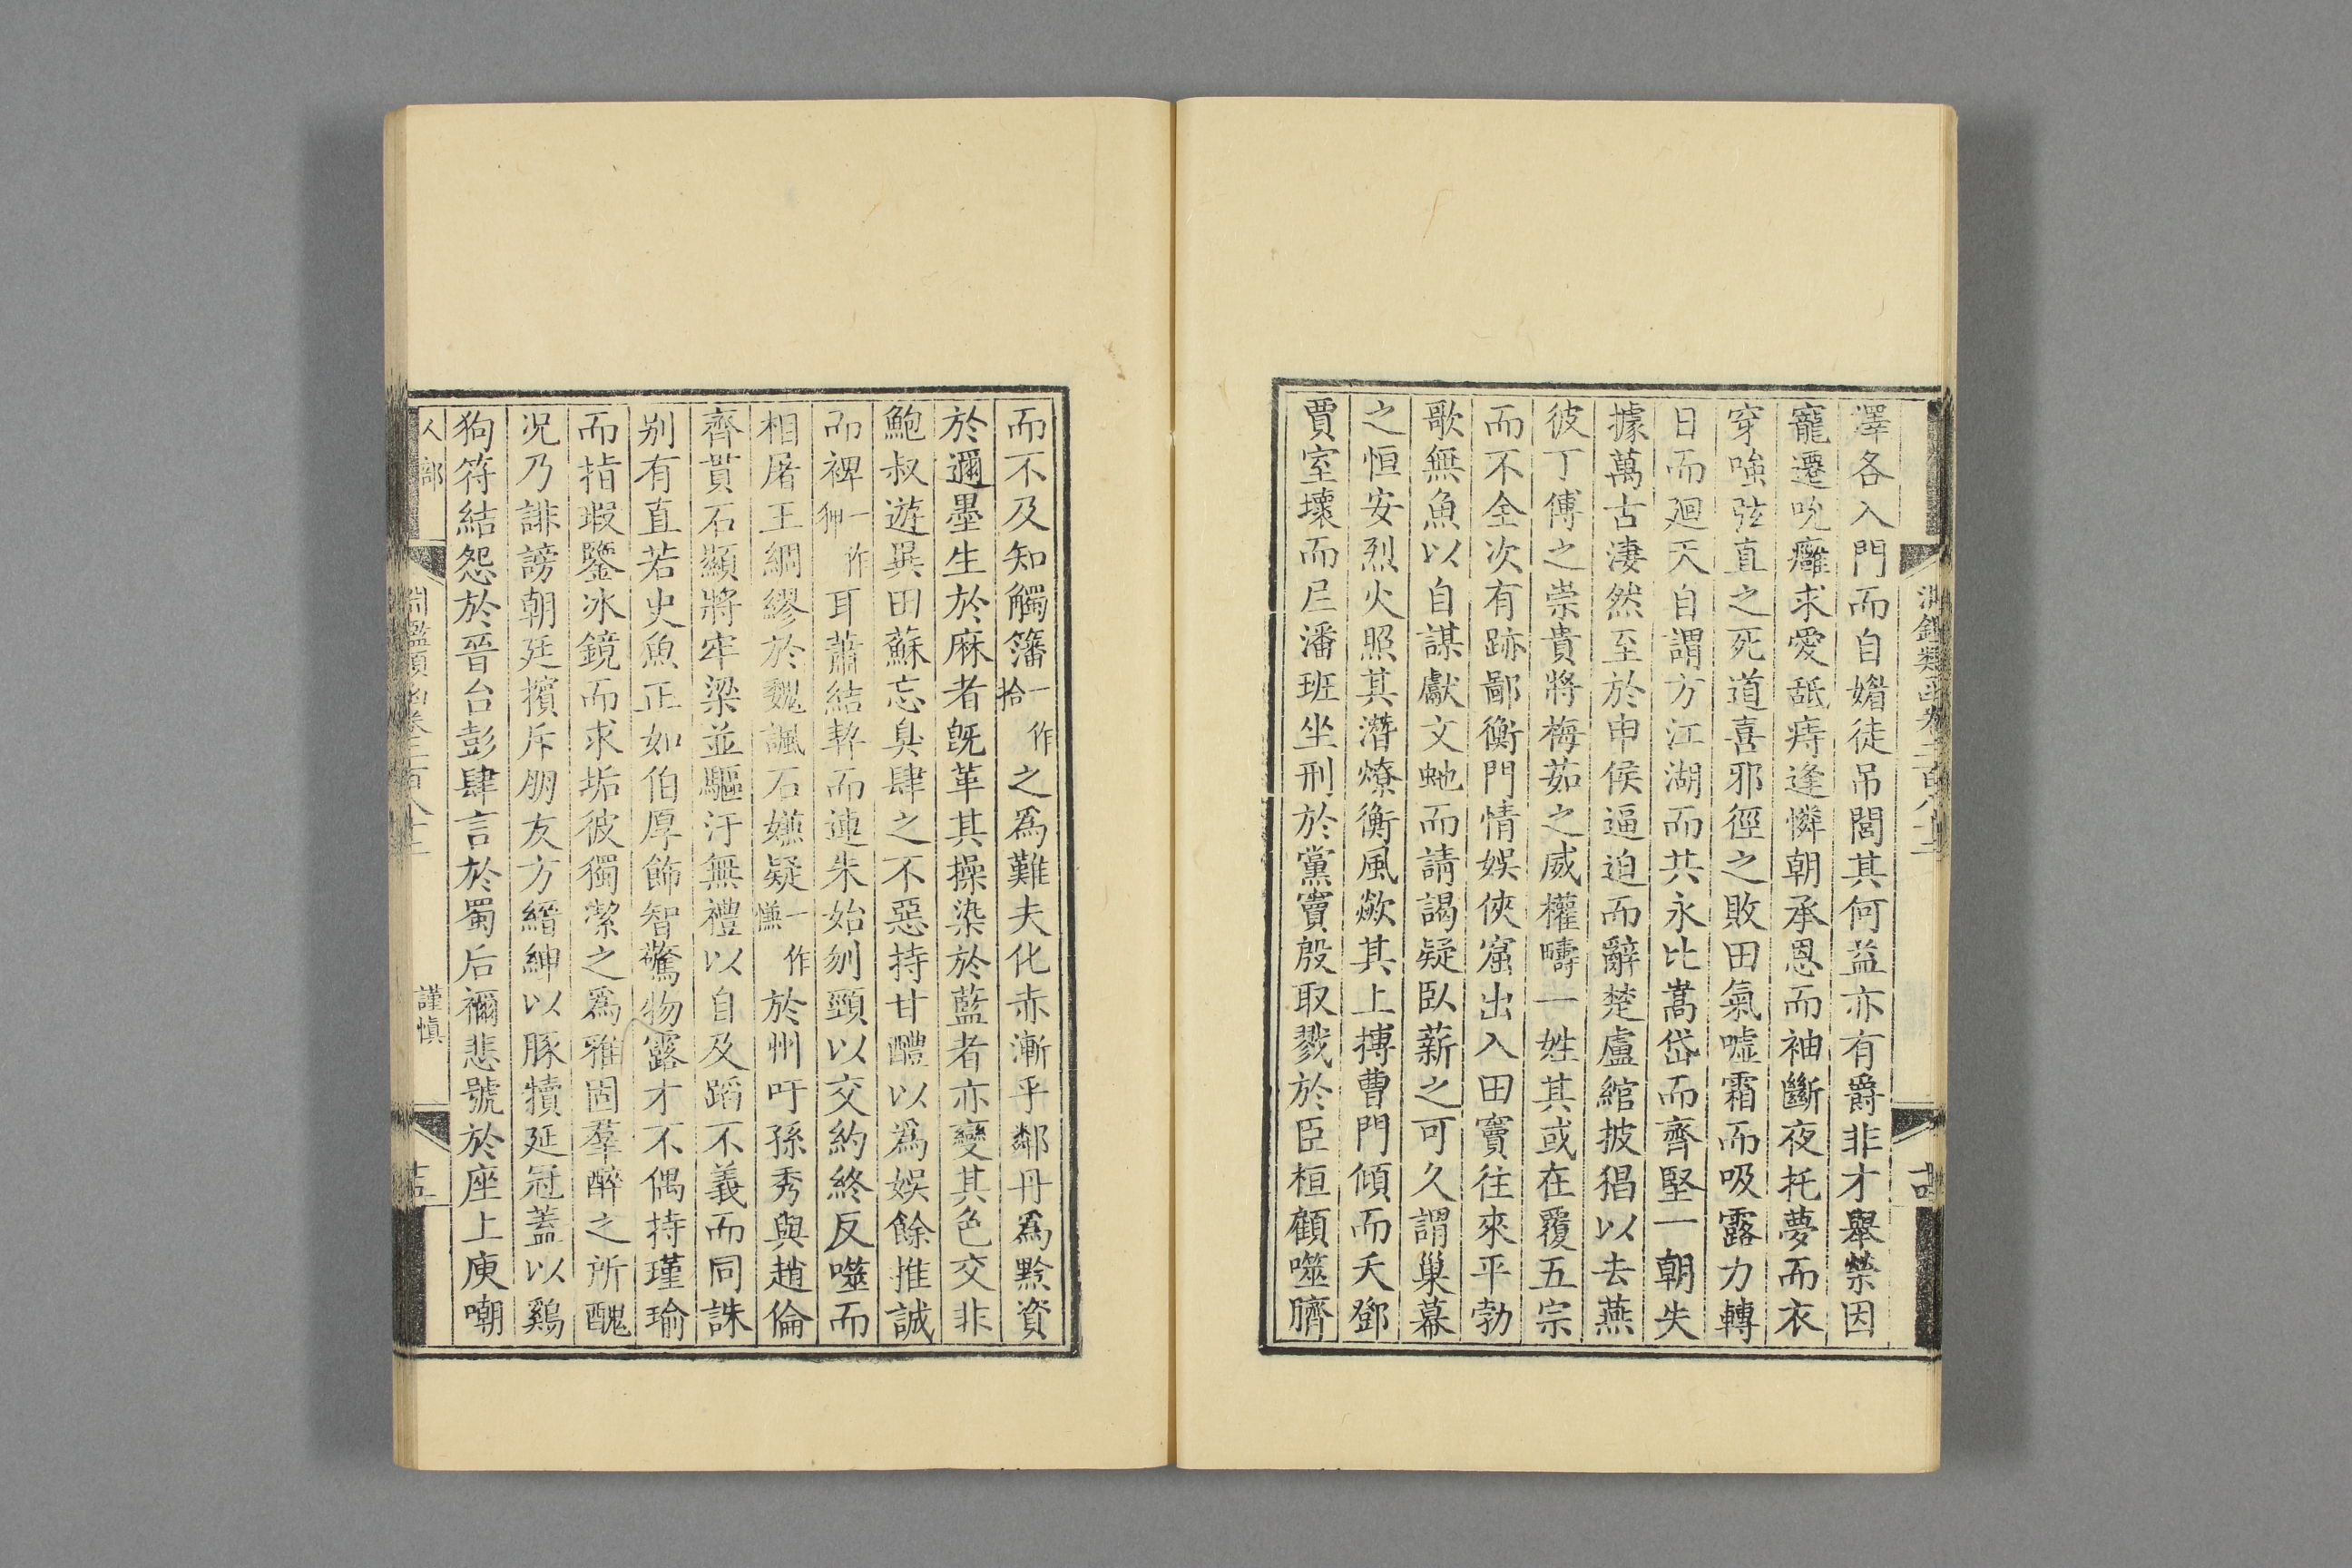 淵鑑類函卷二百八十二
澤各入門而自媚徒吊閻其何益亦有爵非才舉榮因
寵遷吮癰求愛舐痔逢憐朝承恩而袖斷夜托夢而衣
穿唯弦直之死道喜邪徑之敗田氣噓霜而吸露力轉
日而廻天自謂方江湖而共永比嵩岱而齊堅一朝失
據萬古淒然至於申侯逼迫而辭楚盧綰披猖以去燕
彼丁傅之崇貴將梅茹之威權疇一姓其或在覆五宗
而不全次有跡鄙衡門情娛俠窟出入田竇往來平勃
歌無魚以自謀獻文虵而請謁疑臥薪之可久謂巢幕
之恒安烈火照其潛燎衝風歘其上搏曹門傾而夭鄧
賈室壞而尸潘班坐刑於黨竇殷取戮於臣桓顧噬臍
而不及知觸籓一作拾之為難夫化赤漸乎鄰丹為黔資
於邇墨生於麻者旣革其操染於藍者亦變其色交非
鮑叔遊異田蘇忘臭肆之不惡持甘醴以為娛餘推誠
而裨一作耳蕭結契而連朱始刎頸以交約終反噬而
相屠王綢繆於魏諷石嫌疑一作慊於州吁孫秀與趙倫
齊貫石顯將牢梁並驅汙無禮以自及蹈不義而同誅
别有直若史魚正如伯厚飾智驚物露才不偶持瑾瑜
而指瑕鑒冰鏡而求垢彼獨潔之為雅固羣醉之所醜
况乃誹謗朝廷擯斥朋友方縉紳以豚犢延冠蓋以鷄
狗符結怨於晉台彭肆言於蜀后禰悲號於座上庾嘲
人部
謹愼